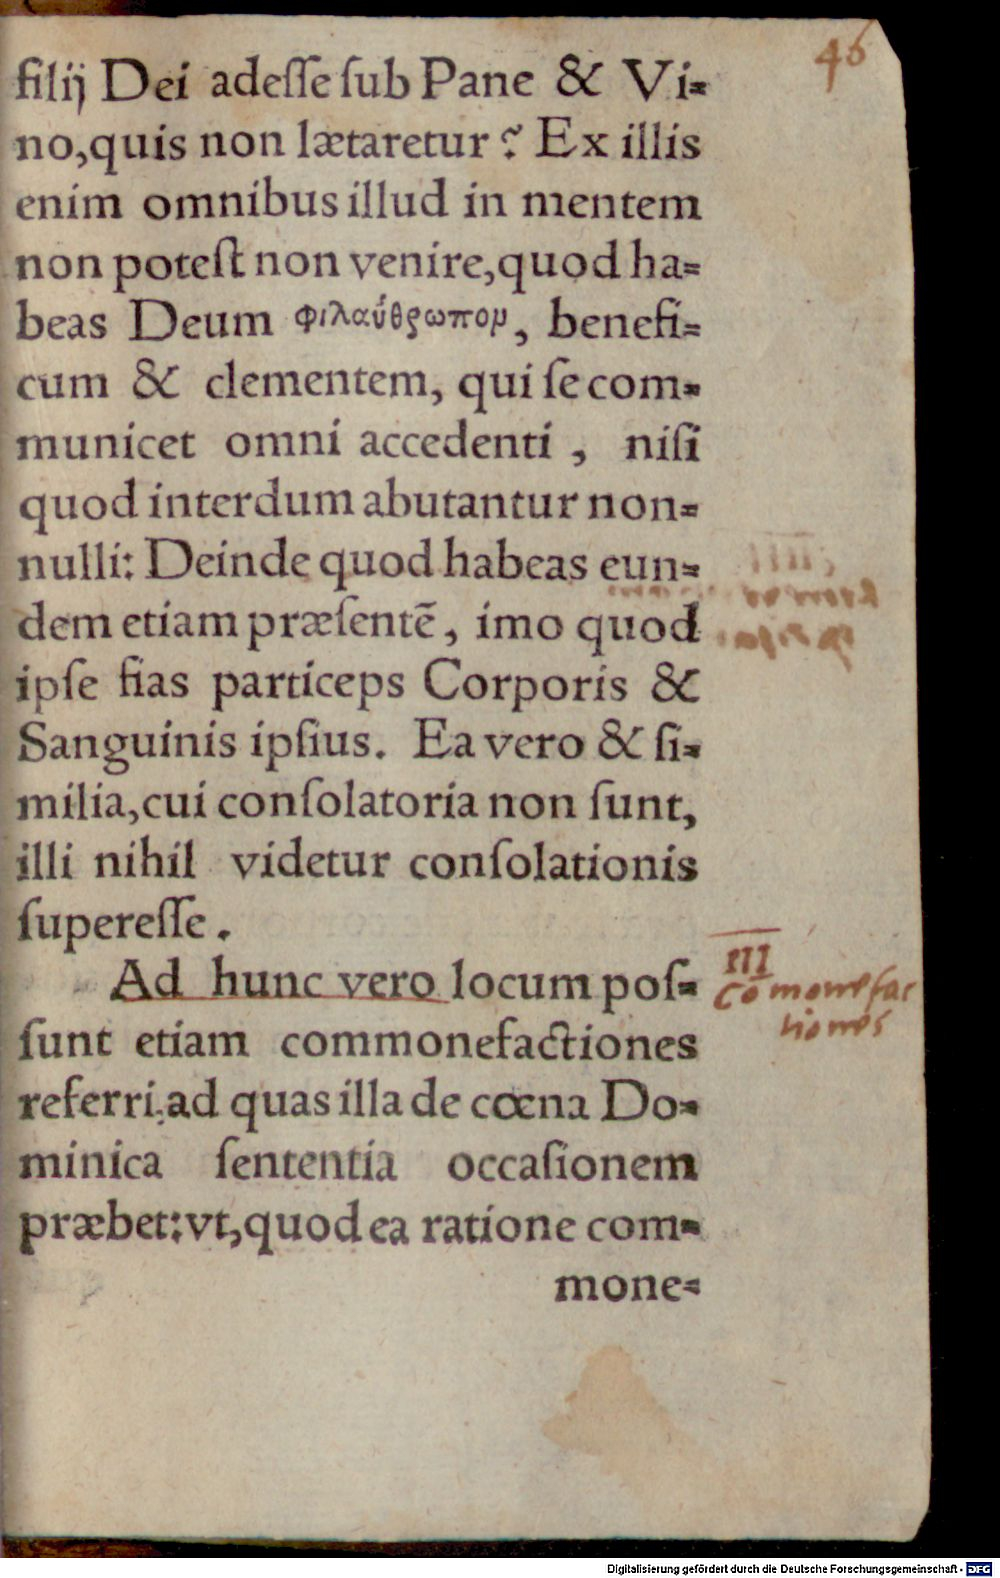 46
filij Dei adeſſe ſub Pane & Vi-
no, quis non lætaretur? Ex illis
enim omnibus illud in mentem
non poteſt non venire, quod ha-
beas Deum φιλαύθρωπομ, benefi-
cum & clementem, qui ſe com-
municet omni accedenti, niſi
quod interdum abutantur non-
nulli: Deinde quod habeas eun-
dem etiam præſentẽ, imo quod
ipſe fias particeps Corporis &
Sanguinis ipſius. Ea vero & ſi-
milia, cui conſolatoria non ſunt,
illi nihil videtur conſolationis
ſupereſſe.
Ad hunc vero locum poſ-
ſunt etiam commonefactiones
referri, ad quas illa de cœna Do-
minica ſententia occaſionem
præbet: vt, quod ea ratione com-
mone-
III
Cōmonefac
tiones
Digitalisierung gefördert durch die Deutsche Forschungsgemeinschaft - DFG